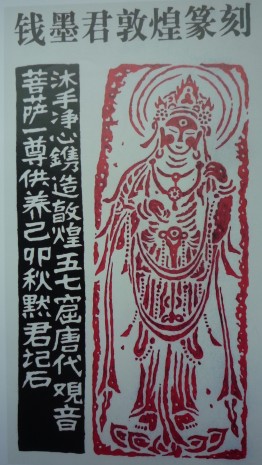 钱墨君敦煌篆刻
沐手净心鐫造敦煌五七窟唐代观音
菩萨一尊供养己卯秋默君记石